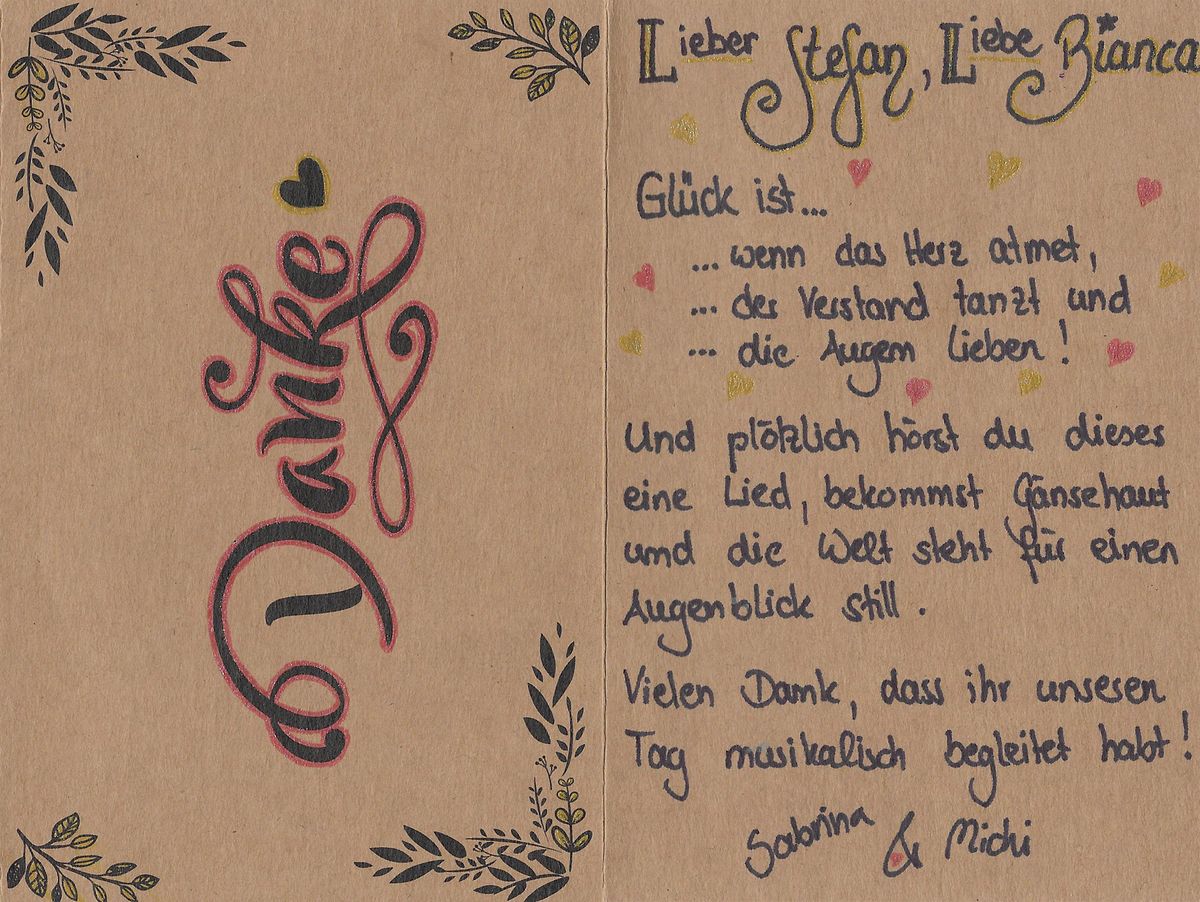 Danke
Lieber Stefan, Liebe Bianca
Glück ist...
... wenn das Herz atmet,
... der Verstand tanzt und
... die Augen lieben!
Und plötzlich hörst du dieses
eine Lied, bekommst Gänsehaut
und die Welt steht für einen
Augenblick still.
Vielen Dank, dass ihr unseren
Tag musikalisch begleitet habt!
Sabrina & Michi